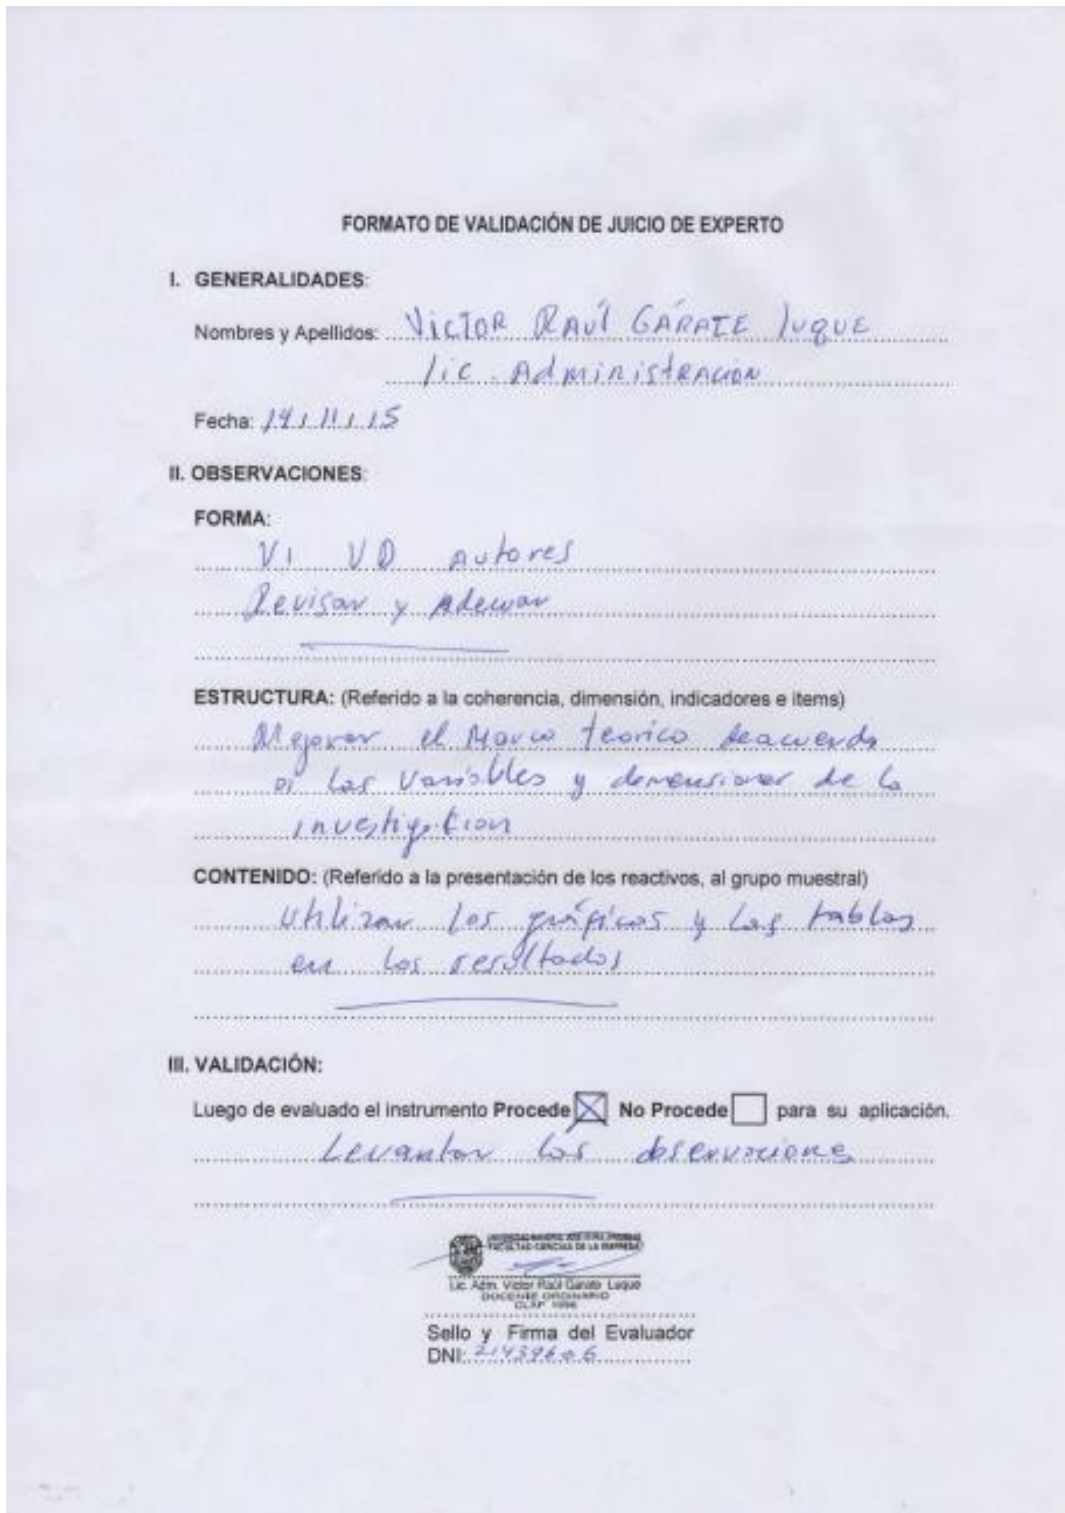 FORMATO DE VALIDACIÓN DE JUICIO DE EXPERTO
I. GENERALIDADES:
Nombres y Apellidos: VICTOR RAÚL GÁRATE LUQUE
Lic. Administración
Fecha: 14/11/15
II. OBSERVACIONES:
FORMA:
VI VD Autores
Revisar y Adecuar
ESTRUCTURA: (Referido a la coherencia, dimensión, indicadores e items)
Mejorar el Marco teorico deacuerdo
a las variables y dimensiones de la
investigation
CONTENIDO: (Referido a la presentación de los reactivos, al grupo muestral)
Utilizar los gráficos y las tablas
en los resultados
III. VALIDACIÓN:
Luego de evaluado el instrumento Procede No Procede para su aplicación.
Levantar las observaciones
FACULTAD CIENCIAS DE LA EMPRESA
Lic. Adm. Victor Raúl Garate Luque
DOCENTE ORDINARIO
Sello y Firma del Evaluador
DNI: 21439606